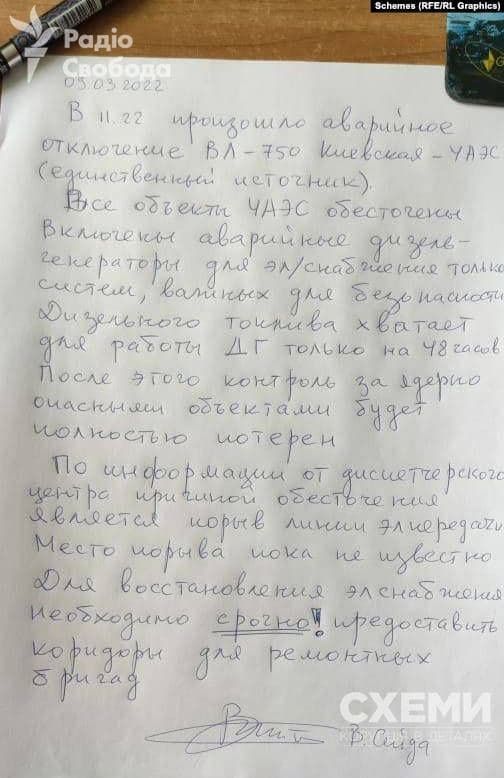 Schemes (RFE/RL Graphics)
Радіо
Свобода
09.03.2022
В 11.22 произошло аварийное
отключение ВЛ-750 Киевская-ЧАЭС
(единственный источник).
Все объекты ЧАЭС обесточены
Включены аварийные дизель-
генераторы для эл/снабжения только
систем, важных для безопасности
Дизельного топлива хватает
для работы ДГ только на 48 часов
После этого контроль за ядерно
опасными объектами будет
полностью потерен
По информации от диспетчерского
центра причиной обесточения
является порыв линии элпередачи
Место порыва пока не известно
Для восстановления элснабжения
необходимо срочно! предоставить
коридоры для ремонтных
бригад
СХЕМИ
КОРУПЦІЯ В ДЕТАЛЯХ